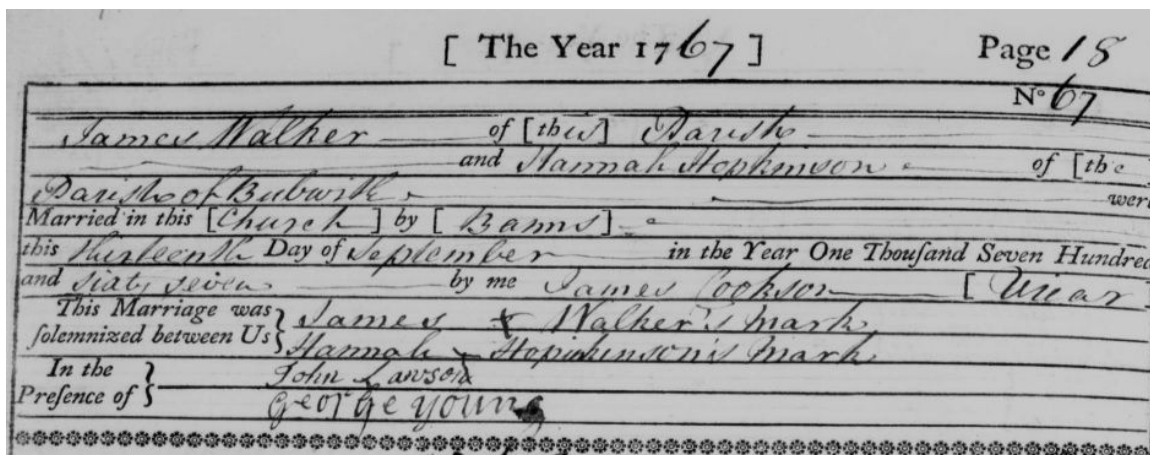 [ The Year 1767 ] Page 18
N° 67
James Walker of [this] Parish
and Hannah Hopkinson of [the
Parish of Bubwith were
Married in this [Church] by [Banns]
this thirteenth Day of September in the Year One Thouſand Seven Hundred
and sixty seven by me James Cookson [Vicar]
This Marriage was ſolemnized between Us } James X Walker's mark
Hannah Hopinkinson's mark
In the Preſence of } John Lawson
George Young